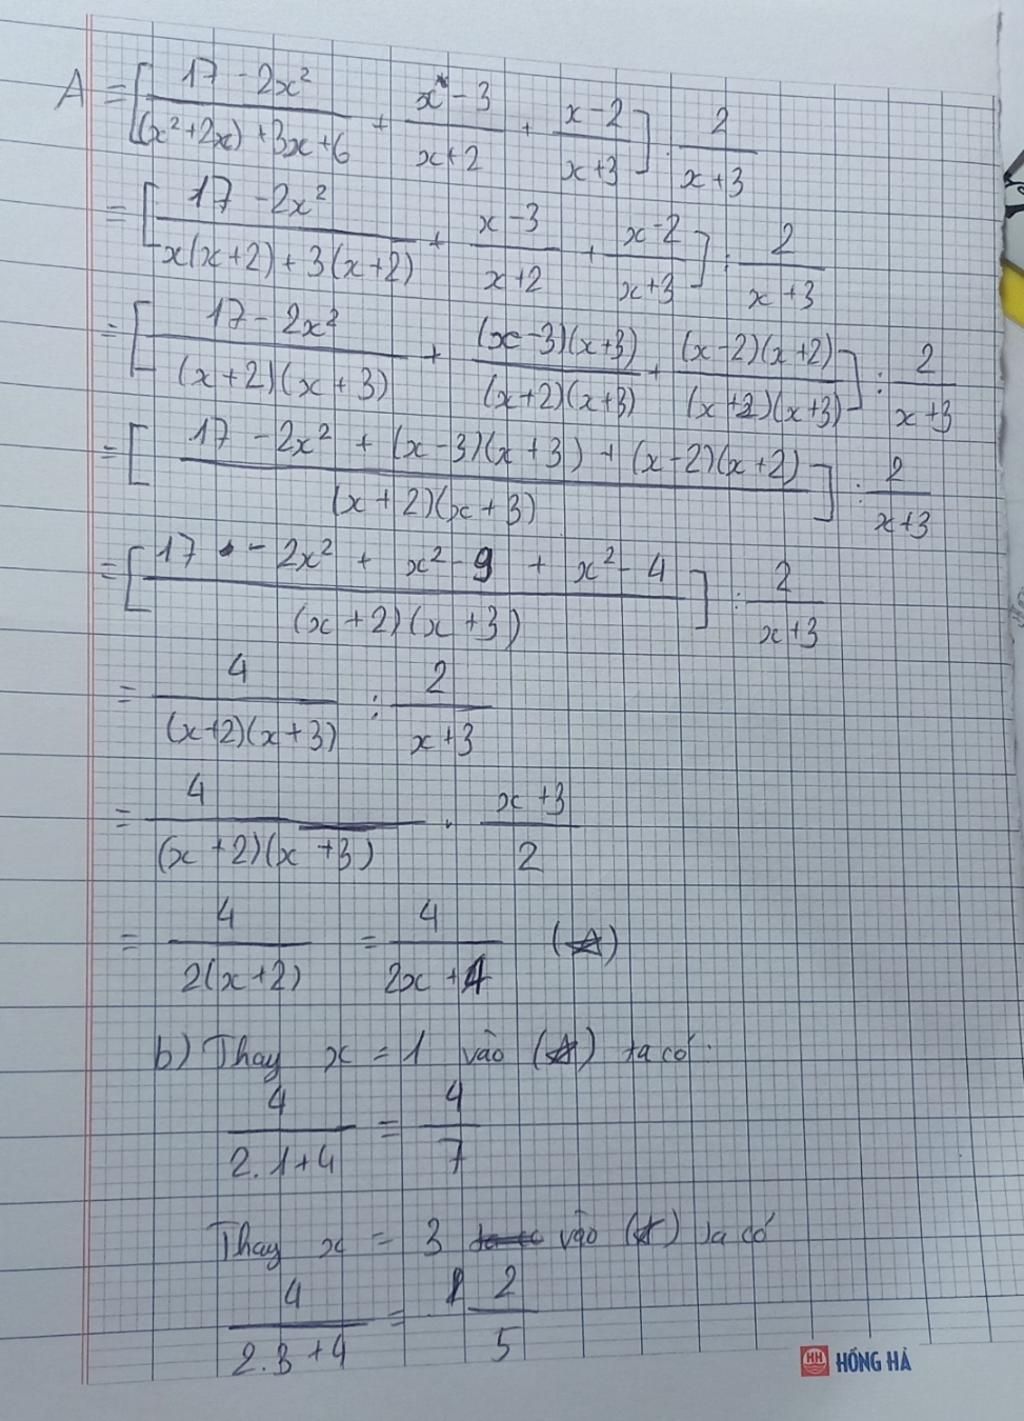 A = [(17 - 2x²)/((x² + 2x) + 3x + 6) + (x - 3)/(x + 2) + (x - 2)/(x + 3)] : 2/(x + 3)
= [(17 - 2x²)/(x(x + 2) + 3(x + 2)) + (x - 3)/(x + 2) + (x - 2)/(x + 3)] : 2/(x + 3)
= [(17 - 2x²)/((x + 2)(x + 3)) + ((x - 3)(x + 3))/((x + 2)(x + 3)) + ((x - 2)(x + 2))/((x + 2)(x + 3))] : 2/(x + 3)
= [(17 - 2x² + (x - 3)(x + 3) + (x - 2)(x + 2))/((x + 2)(x + 3))] : 2/(x + 3)
= [(17 - 2x² + x² - 9 + x² - 4)/((x + 2)(x + 3))] : 2/(x + 3)
= 4/((x + 2)(x + 3)) : 2/(x + 3)
= 4/((x + 2)(x + 3)) . (x + 3)/2
= 4/(2(x + 2)) = 4/(2x + 4) (☆)
b) Thay x = 1 vào (☆) ta có
4/(2.1 + 4) = 4/7
Thay x = 3 vào (☆) ta có
4/(2.3 + 4) = 2/5
HH HỒNG HÀ